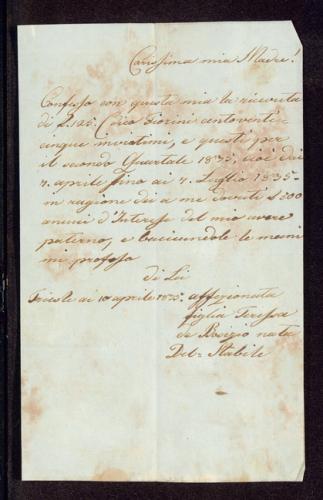 Carissima mia Madre!
Confesso con questa mia la ricevuta
di f. 125. Cioè fiorini centoventi-
cinque inviatimi, e questi per
il secondo Quartale 1835, cioè dai
7. aprile fino ai 7. Luglio 1835-
in ragione dei a me dovuti f. 500
annui d'Interesse del mio avere
paterno, e bacciandole le mani
mi professo
di Lei
Trieste ai 10 aprile 1835. affezionata
figlia Teressa
de Bosizio nata
Del- Stabile